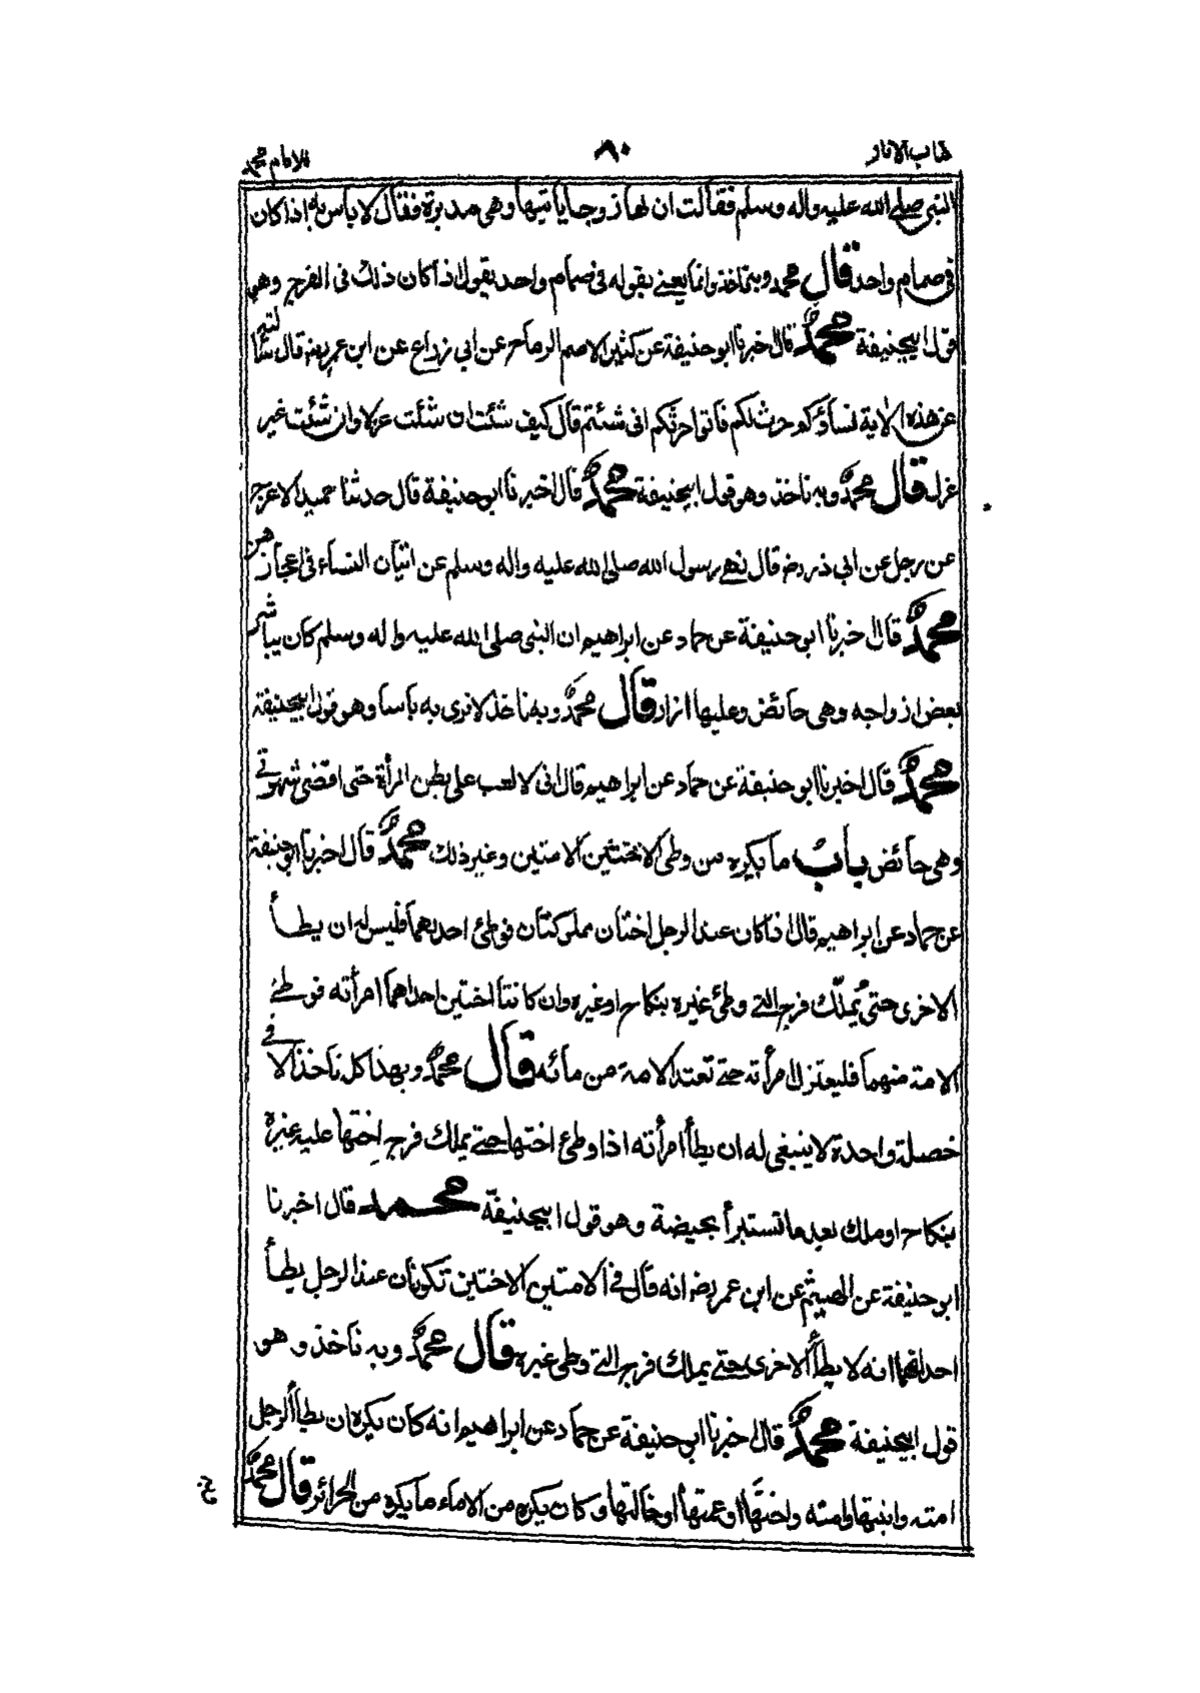 كتاب الآثار ٨٠ للامام محمد
النبي صلے الله عليه واله وسلم فقالت ان لها زوجا ياتيها وهي مدبرة فقال لا باس به اذا كان
في صمام واحد قال محمد وبه ناخذ وانما يعني بقوله في صمام واحد يقول اذا كان ذلك في الفرج وهو
قول ابيحنيفة محمد قال اخبرنا ابو حنيفة عن كثير الاصم الرماح عن ابي زراع عن ابن عمر رضه قال سألته
عن هذه الاية نساؤكم حرث لكم فاتوا حرثكم انى شئتم قال كيف شئت ان شئت عزلا وان شئت غير
عزل قال محمد وبه ناخذ وهو قول ابيحنيفة محمد قال اخبرنا ابو حنيفة قال حدثنا حميد الاعرج
عن رجل عن ابي ذر رضه قال نهى رسول الله صلى الله عليه واله وسلم عن اتيان النساء في اعجازهن
محمد قال اخبرنا ابو حنيفة عن حماد عن ابراهيم ان النبي صلى الله عليه واله وسلم كان يباشر
بعض ازواجه وهي حائض وعليها ازار قال محمد وبه ناخذ لا نرى به باسا وهو قول ابيحنيفة
محمد قال اخبرنا ابو حنيفة عن حماد عن ابراهيم قال اني لالعب على بطن المرأة حتى اقضي شهوتي
وهي حائض باب ما يكره من وطي الاختين الامتين وغير ذلك محمد قال اخبرنا ابو حنيفة
عن حماد عن ابراهيم قال اذا كان عند الرجل اختان مملوكتان فوطئ احدهما فليس له ان يطأ
الاخرى حتى يُملّك فرج التي وطئ غيره بنكاح او غيره وان كانتا اختين احداهما امرأته فوطئ
الامة منهما فليعتزل امرأته حتى تعتد الامة من مائه قال محمد وبهذا كله ناخذ الا في
خصلة واحدة لا ينبغي له ان يطأ امرأته اذا وطئ اختها حتى يملك فرج اختها عليه غيره
بنكاح او ملك بعد ما تستبرأ بحيضة وهو قول ابيحنيفة محمد قال اخبرنا
ابو حنيفة عن الهيثم عن ابن عمر رضه انه قال في الامتين الاختين تكونان عند الرجل يطأ
احداهما انه لا يطأ الاخرى حتى يملك فرج التي وطي غيره قال محمد وبه ناخذ وهو
قول ابيحنيفة محمد قال اخبرنا ابو حنيفة عن حماد عن ابراهيم انه كان يكره ان يطأ الرجل
امته وابنتها وامته واختها او عمتها او خالتها وكان يكره من الاماء ما يكره من الحرائر قال محمد